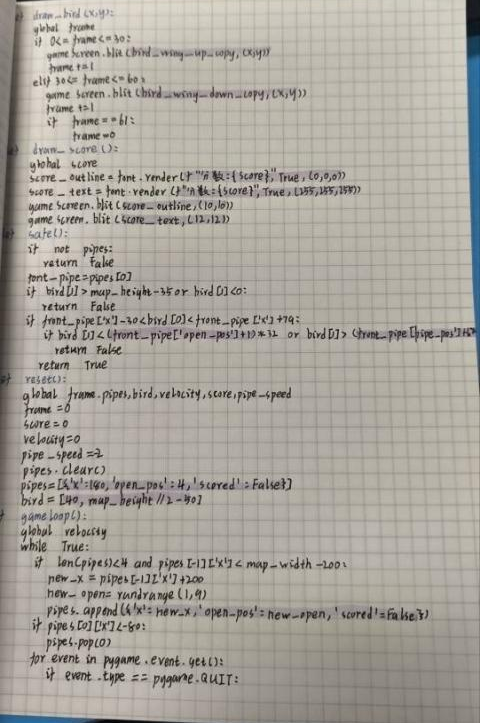 def draw_bird (x,y):
global frame
if 0<= frame<=30:
game screen.blit (bird_wing_up_copy, (x,y))
frame +=1
elif 30<= frame<=60:
game screen.blit (bird_wing_down_copy, (x,y))
frame +=1
if frame==61:
frame=0
draw_score():
global score
score_outline = font.render (f"分数:{score}", True, (0,0,0))
score_text = font.render (f"分数:{score}", True, (255,255,255))
game screen.blit (score_outline, (10,10))
game screen.blit (score_text, (12,12))
safe():
if not pipes:
return False
font_pipe=pipes[0]
if bird[1]>map_height-35 or bird[1]<0:
return False
if front_pipe['x']-30<bird[0]<front_pipe['x']+79:
if bird[1]<(front_pipe['open_pos']+1)*32 or bird[1]>(front_pipe[pipe_pos']
return False
return True
reset():
global frame.pipes,bird,velocity,score,pipe_speed
frame =0
score=0
velocity=0
pipe_speed=2
pipes.clear()
pipes=[{'x'=180,'open_pos'=4,'scored'=False}]
bird = [40, map_height//2-50]
gameloop():
global velocity
while True:
if len(pipes)<4 and pipes[-1]['x']<map_width-200:
new_x = pipes[-1]['x']+200
new_open= randrange (1,9)
pipes.append({'x'=new_x,'open_pos'=new_open,'scored'=False})
if pipes[0]['x']<-80:
pipes.pop(0)
for event in pygame.event.get():
if event.type == pygame.QUIT: